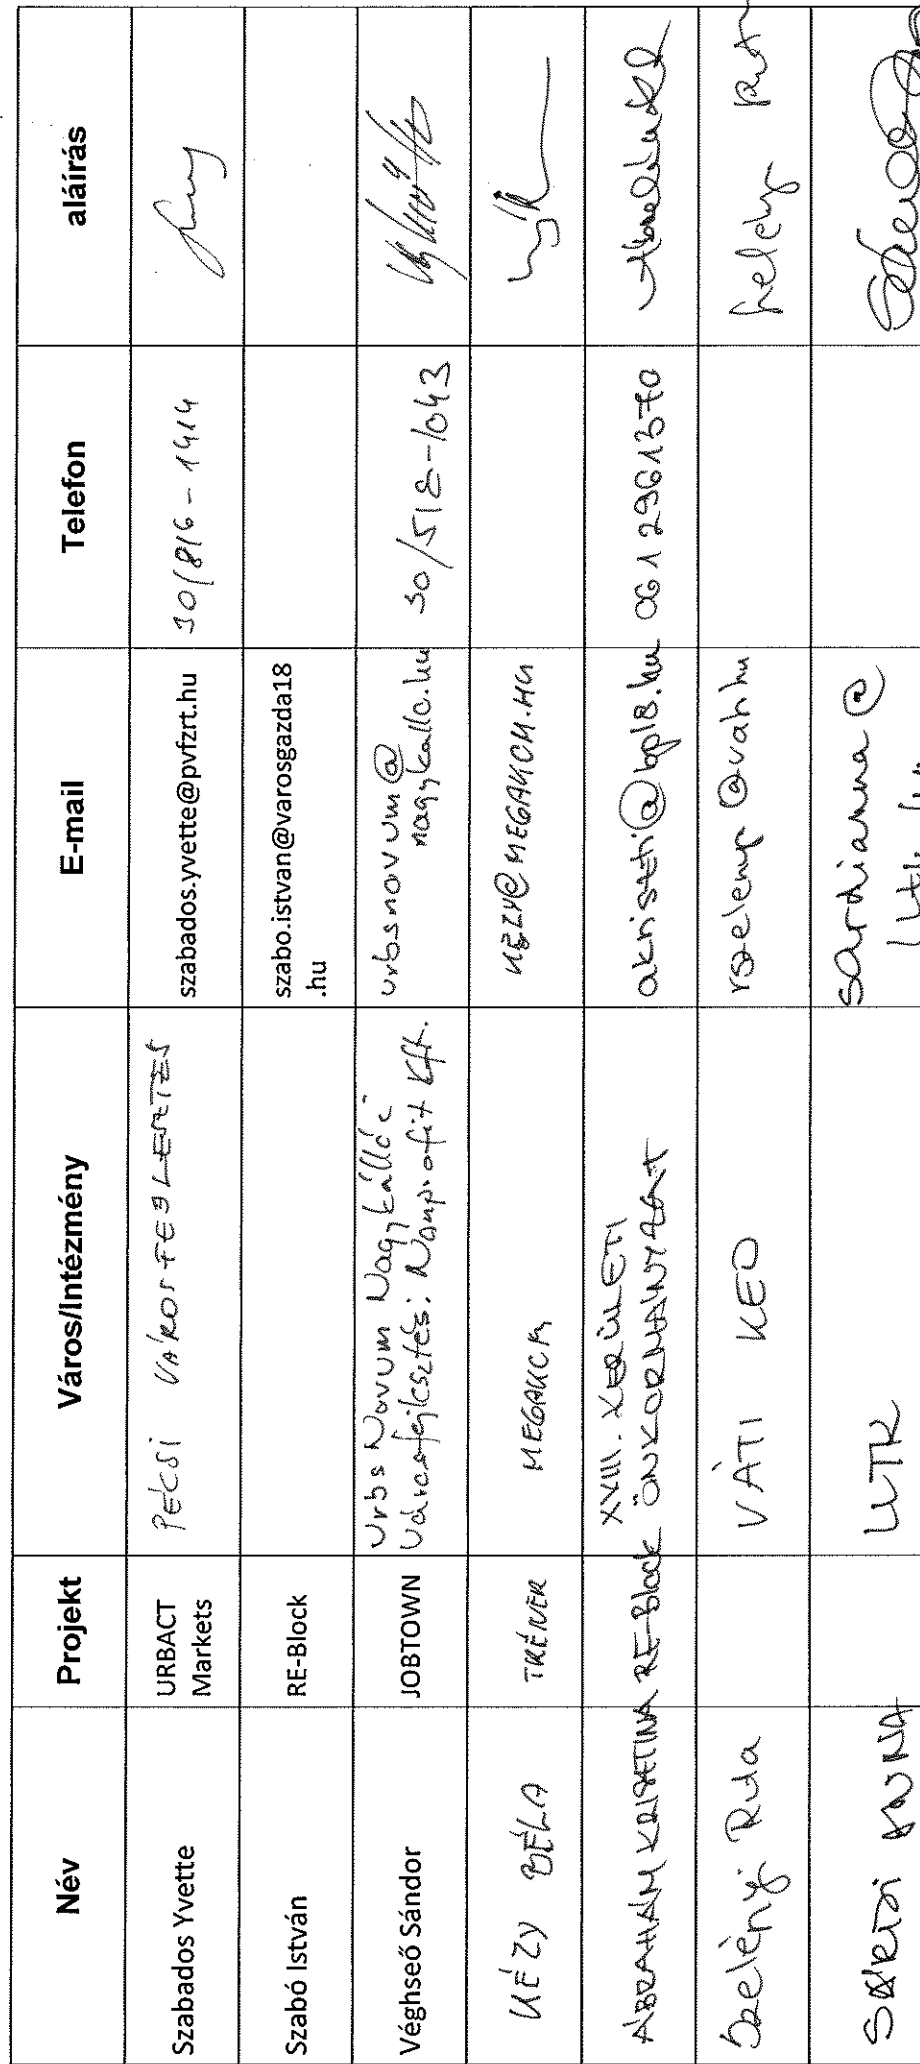 Név Projekt Város/Intézmény E-mail Telefon aláírás
Szabados Yvette
URBACT
Markets
PÉCSI VÁROSFEJLESZTÉS
szabados.yvette@pvfzrt.hu
30/816-1414
Szabó István
RE-Block
szabo.istvan@varosgazda18
.hu
Véghseő Sándor
JOBTOWN
Urbs Novum Nagykállói
Városfejlesztési Nonprofit Kft.
urbsnovum@
nagykallo.hu
30/518-1043
BÉLA
TRÉNER
MEGAKOM
ÁBRAHÁM KRISZTINA
RE-Block
XVIII. KERÜLETI
ÖNKORMÁNYZAT
akriszti@bp18.hu
06 1 2961370
Szelényi Ruta
VÁTI KEO
rszelenyi@vati.hu
SÁRDI ANNA
sardianna@